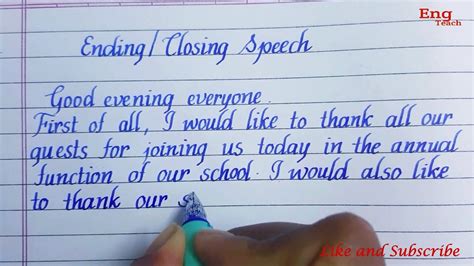 Eng
Teach
Ending/Closing Speech
Good evening everyone.
First of all, I would like to thank all our
guests for joining us today in the annual
function of our school. I would also like
to thank our s
Like and Subscribe